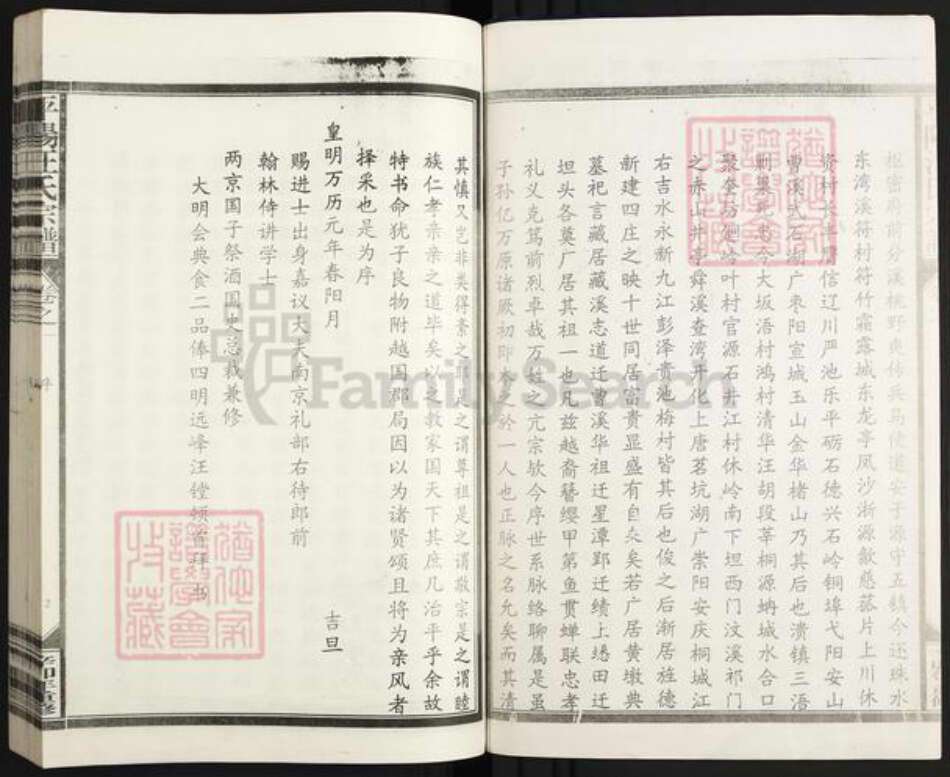 东湾溪符村符竹霜露城东龙亭凤沙浙源歙慈菰片上川休
资村长丰腊信辽川严池乐平砺石德兴石岭铜埠弋阳安山
曹溪武石湖广枣阳宣城玉山金华楮山乃其后也渍镇三浯
今大坂浯村鸿村清华汪胡段莘桐源蚺城水合口
岭叶村官源石井江村休岭南下坦西门汶溪祁门
之赤山井亭舜溪查湾开化上唐茗坑湖广崇阳安庆桐城江
右吉水永新九江彭泽贵池梅村皆其后也俊之后渐居旌德
新建四庄之映十世同居富贵显盛有自矣若广居黄墩典
墓祀言藏居藏溪志道迁曹溪华祖迁星潭郢迁绩上田迁
坦头各奠厂居其祖一也凡兹越裔簪缨甲第鱼贯蝉联忠孝
礼义克笃前烈卓哉万姓之亢宗欤今序世系脉络聊属是虽
子孙亿万原诸厥初即本之於一人也正脉之名允矣而其清
其慎又岂非类得素之即是之谓尊祖是之谓敬宗是之谓睦
族仁孝亲亲之道毕矣以之教家国天下其庶几治平乎余故
特书命犹子良物附越国郡局因以为诸贤颂且将为亲风者
择采也是为序
皇明万历元年春阳月 吉旦
赐进士出身嘉议大夫南京礼部右待郎前
翰林侍讲学士
两京国子祭酒国史总裁兼修
大明会典食二品俸四明远峰汪镗顿首拜书
平阳汪氏宗谱
卷之一
序
2
FamilySearch